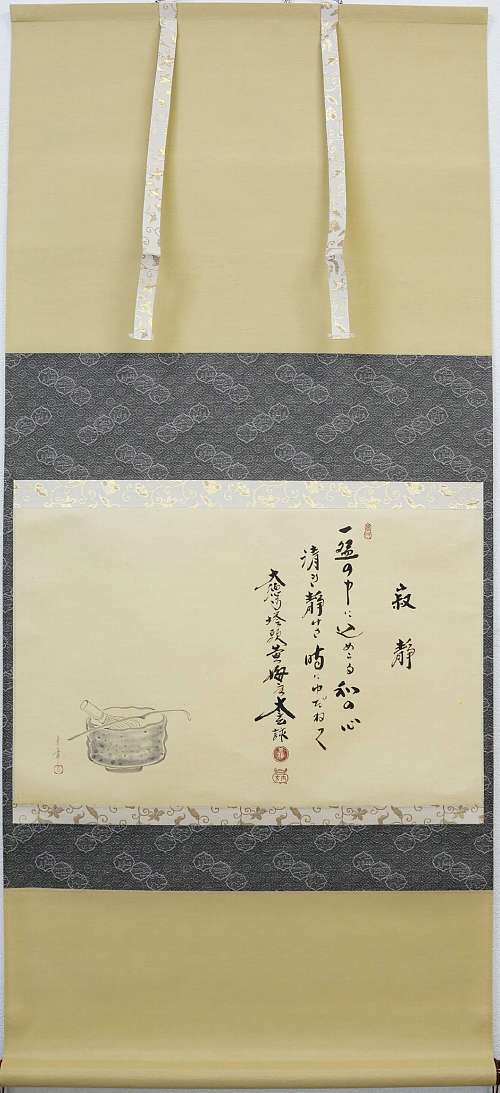 寂静
一盌の中に込めたる和の心
清き静けき時にゆだねて
大徳寺塔頭黄梅院太玄詠